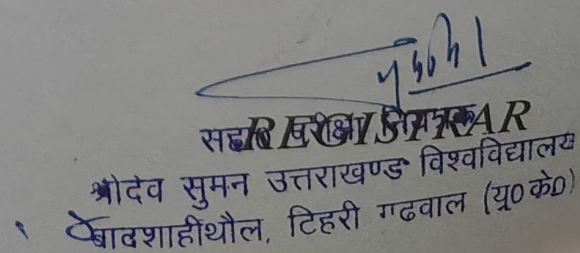 सहायक परीक्षा नियंत्रक
REGISTRAR
श्रीदेव सुमन उत्तराखण्ड विश्वविद्यालय
बादशाहीथौल, टिहरी गढवाल (यू0 के0)